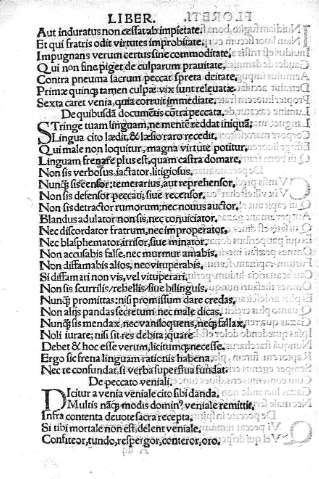 LIBER.
Aut induratus non cessat ab impietate.
Et qui fratris odit virtutes improbitate.
Impugnans verum certus sine commoditate,
Qui non fine piget de culparum prauitate,
Contra pneuma sacrum peccat spreta deitate,
Primæ quinqȝ tamen culpæ vix sunt releuatæ.
Sexta caret venia, quia corruit immediate.
De quibusdā documētis cōtra peccata.
STringe tuam linguam, ne mentē reddat iniquā.
Lingua cito lædit, & læso raro recedit.
Qui male non loquitur, magna virtute potitur,
Linguam frenare plus est, quam castra domare,
Non sis verbosus, iactator, litigiosus,
Nunqȝ sis censor; temerarius, aut reprehensor,
Non sis defensor peccati, siue recensor,
Non sis detractor rumorum, nec nouus auctor,
Blandus adulator non sis, nec conuiciator,
Nec discordator fratrum, nec improperator,
Nec blasphemator, irrisor, siue minator.
Non accusabis false, nec murmur amabis,
Non diffamabis alios, neqȝ vituperabis,
Si diffamari non vis, vel vituperari,
Non sis scurrilis, rebellis, siue bilinguis,
Nunqȝ promittas: nisi promissum dare credas,
Non aliis pandas secretum: nec male dicas,
Nunqȝ sis mendax, nec vaniloquens, neqȝ fallax,
Noli iurare: nisi sit res debita quare
Debet & hoc esse verum, licitumqȝ necesse.
Ergo sic frena linguam rationis habena.
Nec te confundat, si verba superflua fundat.
De peccato veniali.
DIcitur a venia veniale cito sibi danda.
Multis nāqȝ modis dominꝰ veniale remittit,
Infra contenta deuote sacra recepta.
Si tibi mortale non est, delent veniale.
Confiteor, tundo, respergor, conteror, oro.